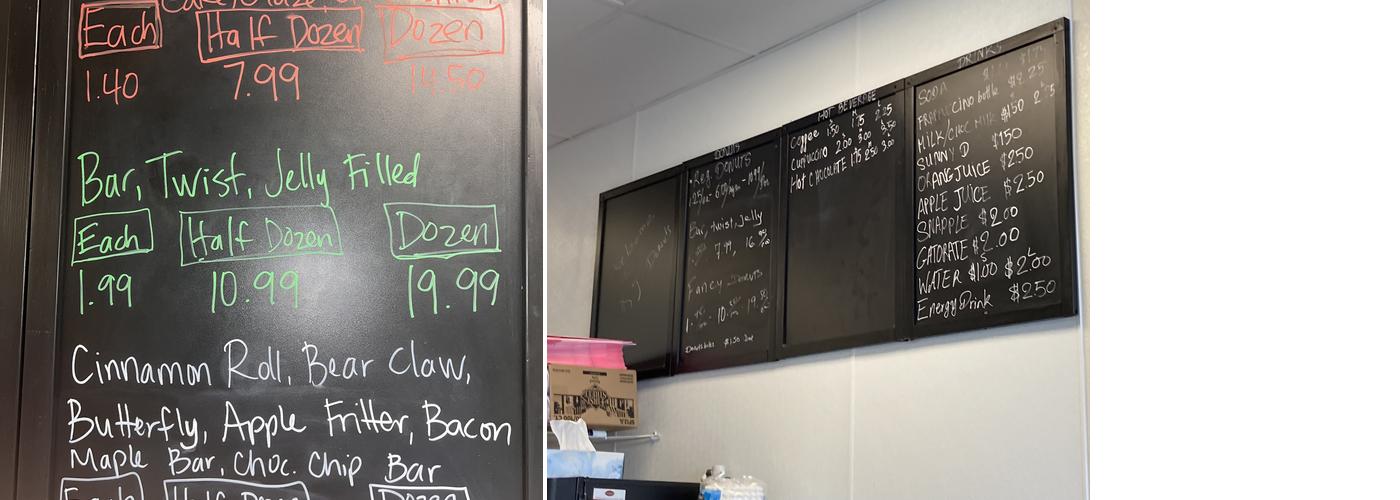 Each Half Dozen Dozen
1.40 7.99 14.50
Bar, Twist, Jelly Filled
Each Half Dozen Dozen
1.99 10.99 19.99
Cinnamon Roll, Bear Claw,
Butterfly, Apple Fritter, Bacon
Maple Bar, Choc. Chip Bar
Each Half Dozen Dozen
DONUTS
Reg. DONUTS
Bar, twist, Jelly
7.99, 16.
Fancy Donuts
$1.50
HOT BEVERAGE
Coffee 1.50 1.75 2.25
Cuppuccino 2.00 3.00 3.50
Hot CHOCOLATE 1.75 2.50 3.00
DRINKS
SODA
FRAPPuccino bottle $2.25
MILK/CHOC MILK $1.50 2.75
SUNNY D $1.50
ORANGJUICE $2.50
APPLE JUICE $2.50
SNAPPLE $2.00
GATORATE $2.00
WATER S $1.00 L $2.00
Energy Drink $2.50